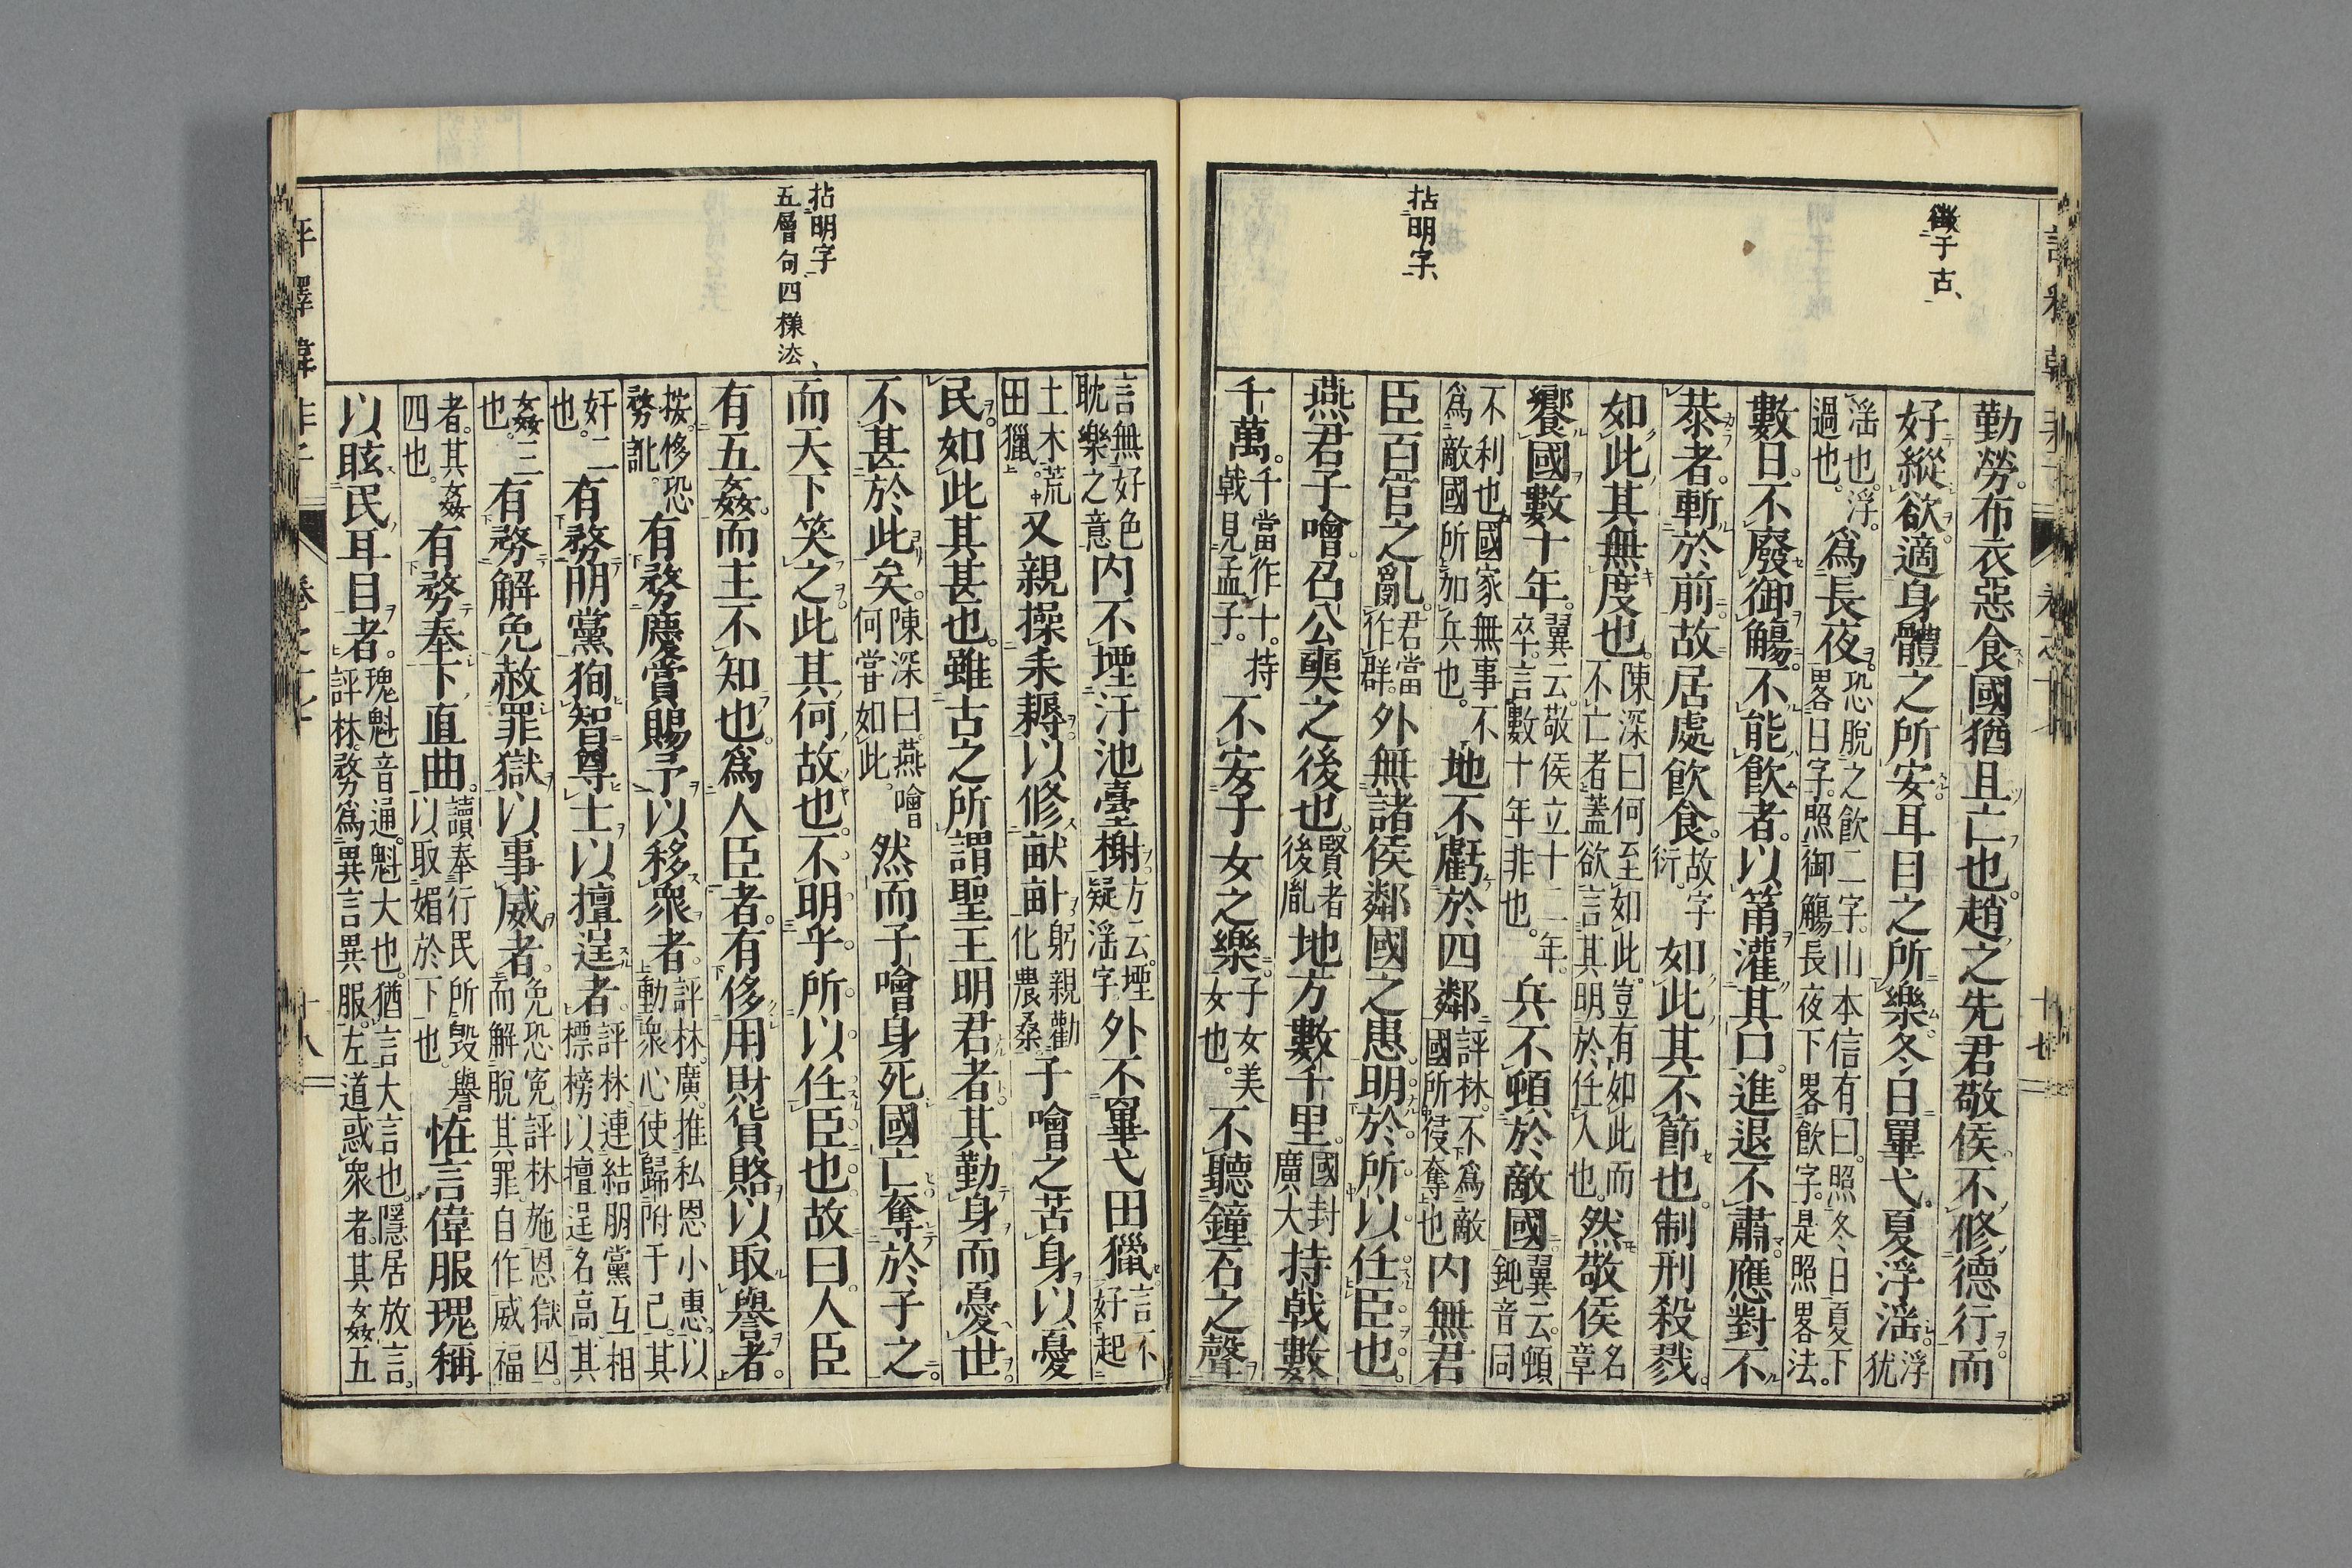 徵于古
拈明字
勤勞。布衣惡食。國猶且亡也。趙之先君敬侯。不修德行。而
好縱欲。適身體之所安。耳目之所樂。冬日罼弋。夏浮淫。浮猶
淫也。浮。過也。爲長夜。恐脫之飮二字。山本信有曰。照冬日夏下畧日字。照御觴長夜下畧飮字。是照畧法。
數日。不廢御觴。不能飮者。以筩灌其口。進退不肅應對不
恭者。斬於前。故居處飮食。故字衍。如此其不節也。制刑殺戮。
如此其無度也。陳深曰何至如此。豈有如此而不亡者。蓋欲言其明於任人也。然敬侯名章
饗國數十年。翼云。敬侯立十二年。卒。言數十年非也。兵不頓於敵國。翼云。頓鈍音同
不利也。國家無事不爲敵國所加兵也。地不虧於四鄰。評林。不爲敵國所侵奪也內無君
臣百官之亂。君當作群。外無諸侯鄰國之患。明於所以任臣也。
燕君子噲。召公奭之後也。賢者後胤地方數千里。國封廣大持戟數
千萬。千當作十。持戟見孟子。不安子女之樂。子女美女也。不聽鐘石之聲
拈明字
五層句四樣法
言無好色耽樂之意內不堙汙池臺榭方云。堙疑淫字外不罼弋田獵言不好起
土木荒田獵。又親操耒耨。以修畎畝躬親勸化農桑子噲之苦身以憂
民。如此其甚也。雖古之所謂聖王明君者。其勤身而憂世。
不甚於此矣。陳深曰。燕噲何嘗如此。然而子噲身死國亡奪於子之。
而天下笑之。此其何故也。不明乎所以任臣也。故曰。人臣
有五姦。而主不知也。爲人臣者。有侈用財貨賂以取譽者。
按。侈恐務訛。有務慶賞賜予以移衆者。評林。廣推私恩小惠。以動衆心使歸附于己。其
奸二也。有務朋黨狥智尊士以擅逞者。評林。連結朋黨互相標榜以擅逞名高。其
姦三也。有務解免赦罪獄以事威者。免恐寃。評林。施恩獄囚。而解脫其罪。自作威福
者。其姦四也。有務奉下直曲。讀奉行民所毀譽以取媚於下也。恠言偉服瑰稱
以眩民耳目者。瑰魁音通。魁大也。猶言大言也。隱居放言。評林。務爲異言異服。左道惑衆者。其姦五